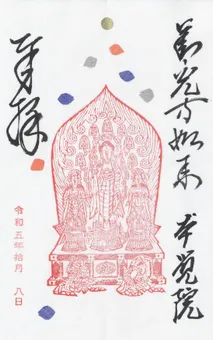 善光寺如来
本覚院
奉拝
令和五年拾月 八日